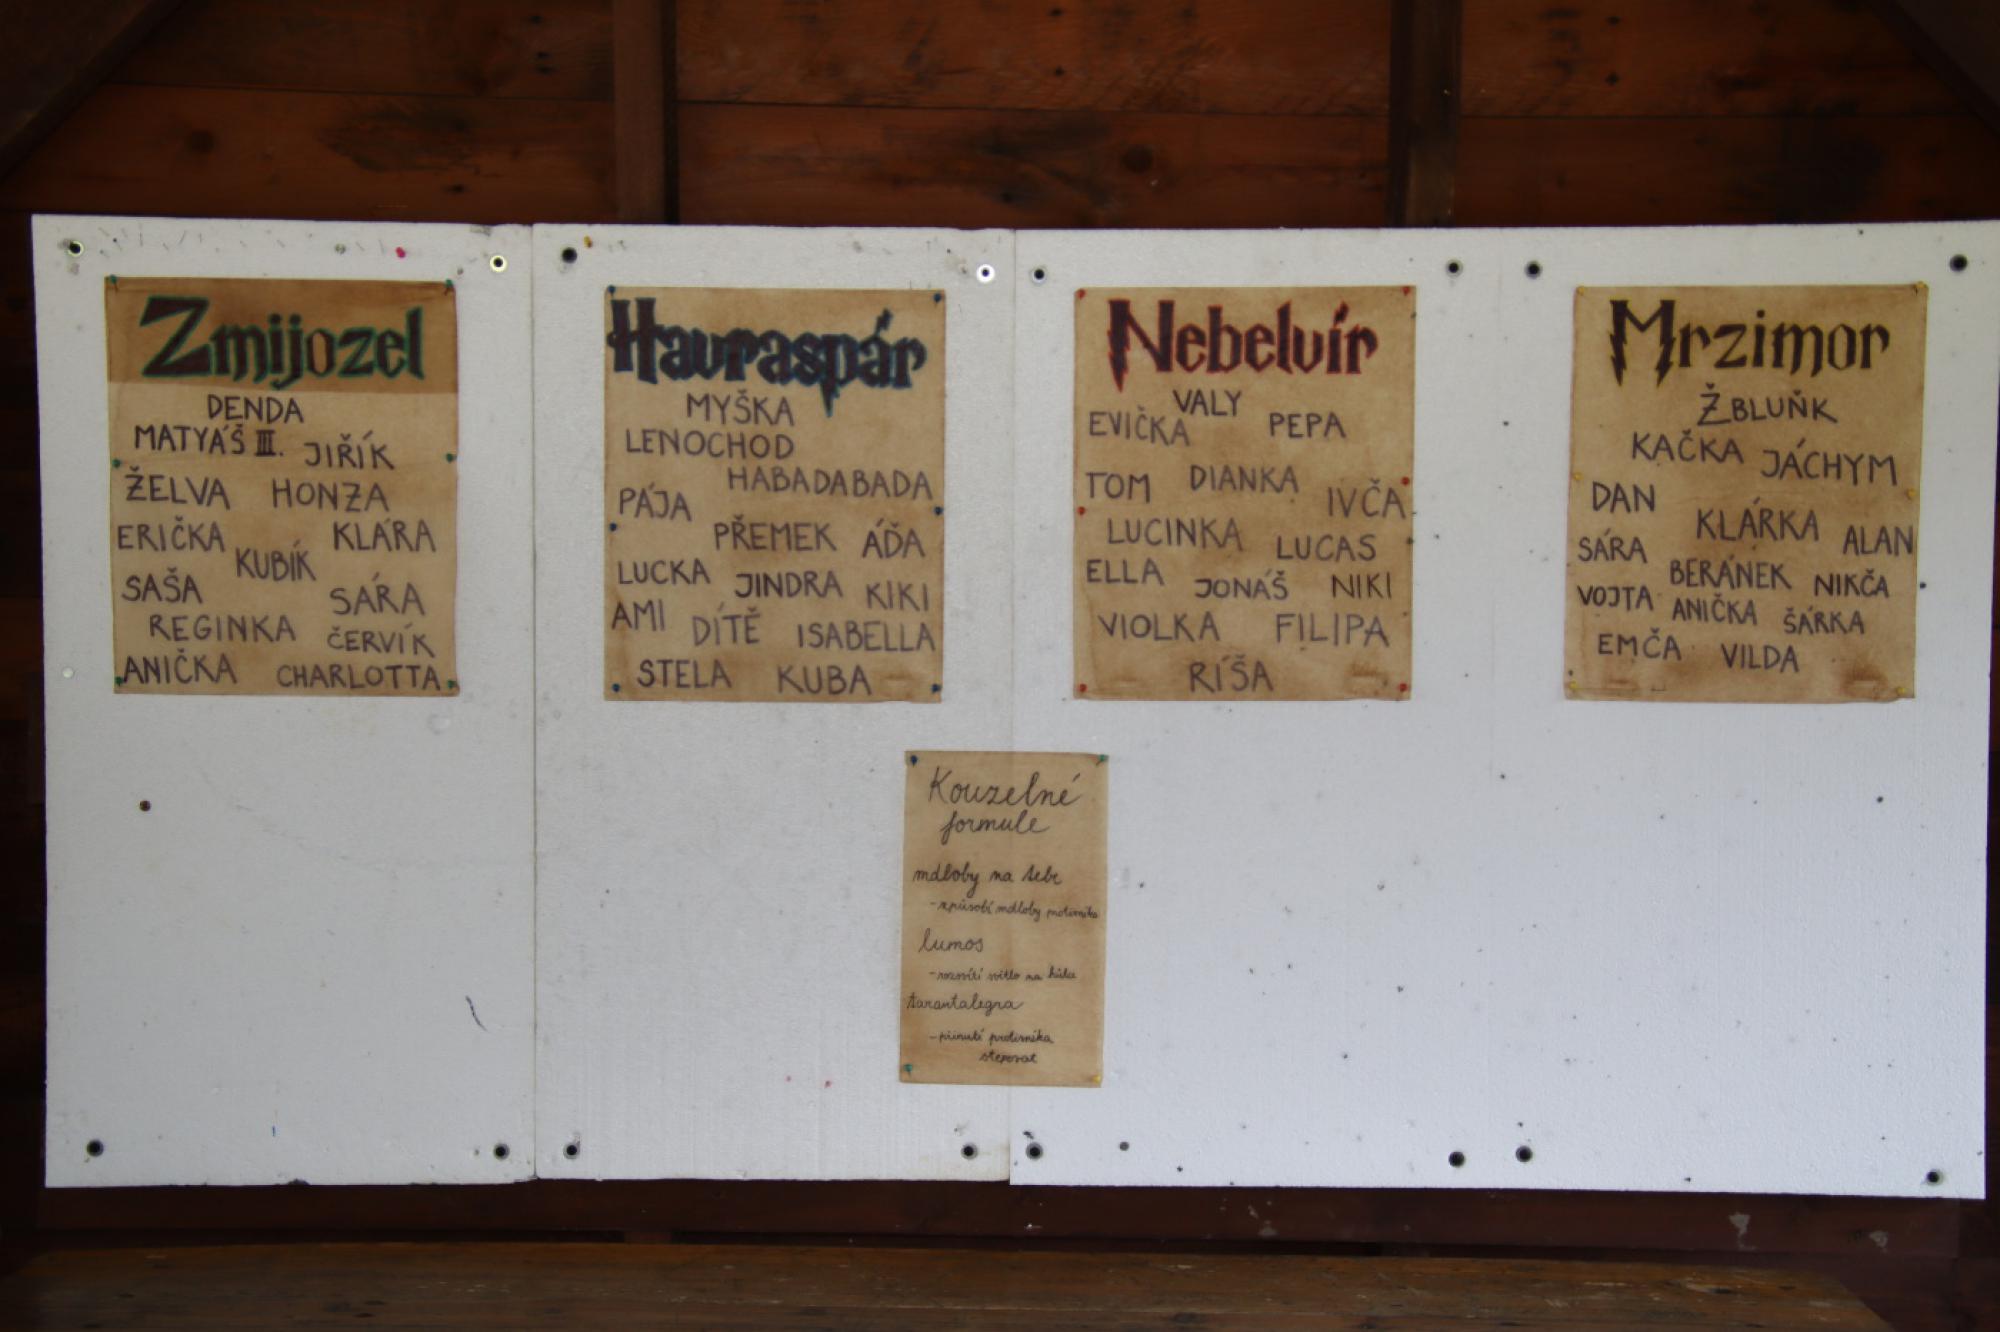 Zmijozel
DENDA
MATYÁŠ III. JIŘÍK
ŽELVA HONZA
ERIČKA KLÁRA
KUBÍK
SAŠA SÁRA
REGINKA ČERVÍK
ANIČKA CHARLOTTA
Havraspár
MYŠKA
LENOCHOD
HABADABADA
PÁJA
PŘEMEK ÁĎA
LUCKA JINDRA KIKI
AMI DÍTĚ ISABELLA
STELA KUBA
Nebelvír
VALY
EVIČKA PEPA
TOM DIANKA IVČA
LUCINKA LUCAS
ELLA JONÁŠ NIKI
VIOLKA FILIPA
RÍŠA
Mrzimor
ŽBLUŇK
KAČKA JÁCHYM
DAN
KLÁRKA ALAN
SÁRA
BERÁNEK NIKČA
VOJTA ANIČKA ŠÁRKA
EMČA VILDA
Kouzelné
formule
mdloby na tebe
-způsobí mdloby protivníka
lumos
-rozsvítí světlo na hůlce
tarantalegra
-přinutí protivníka
stepovat